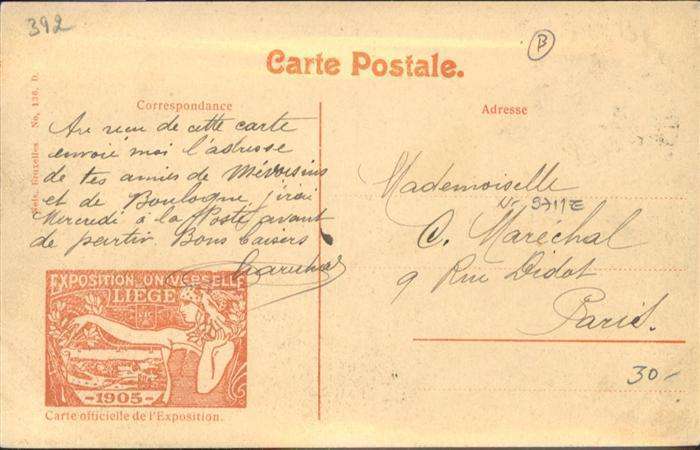 392
B
Carte Postale.
Nels, Bruxelles No. 136, D.
Correspondance
Au reçu de cette carte
envoie moi l'adresse
de tes amies de Mévoisins
et de Boulogne, j'irai
Mercredi à la Poste avant
de partir. Bons baisers
EXPOSITION UNIVERSELLE
LIEGE
-1905-
Carte officielle de l'Exposition.
Adresse
Mademoiselle
C. Maréchal
9 Rue Didot
Paris.
30-